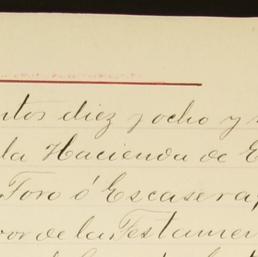 ntos diez y ocho y
la Hacienda de E
Toro ó Escasera,
vor de la Testamen